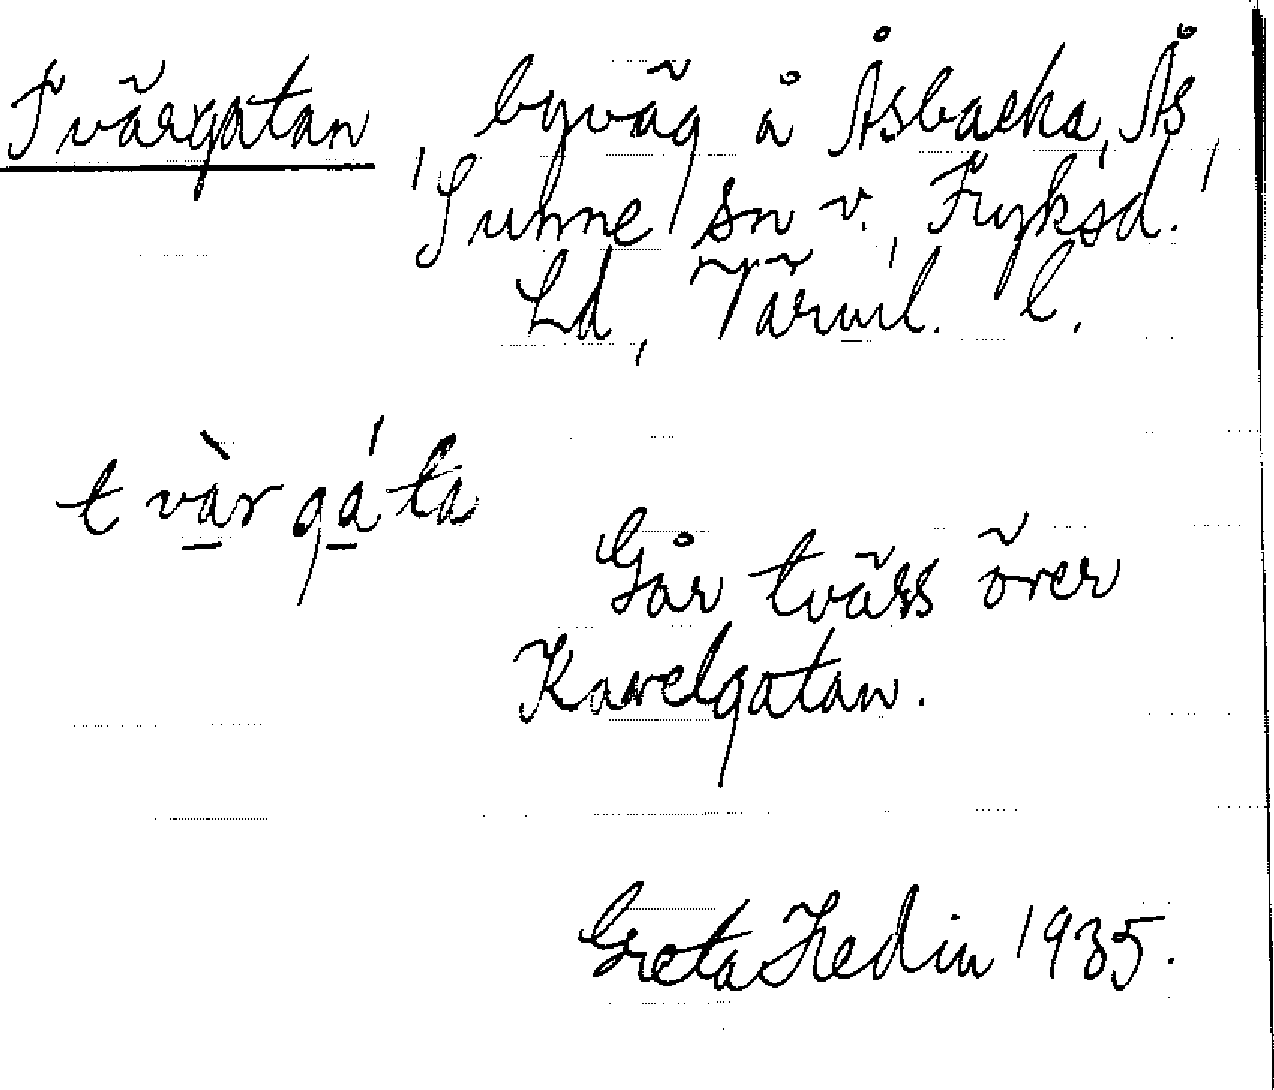 Tvärgatan, byväg å Åsbacka, Ås,
Sunne sn v., Fryksd.
Ld, Värml. l.
tvàrgáta
Går tvärs över
Kavelgatan.
Greta Hedin 1935.